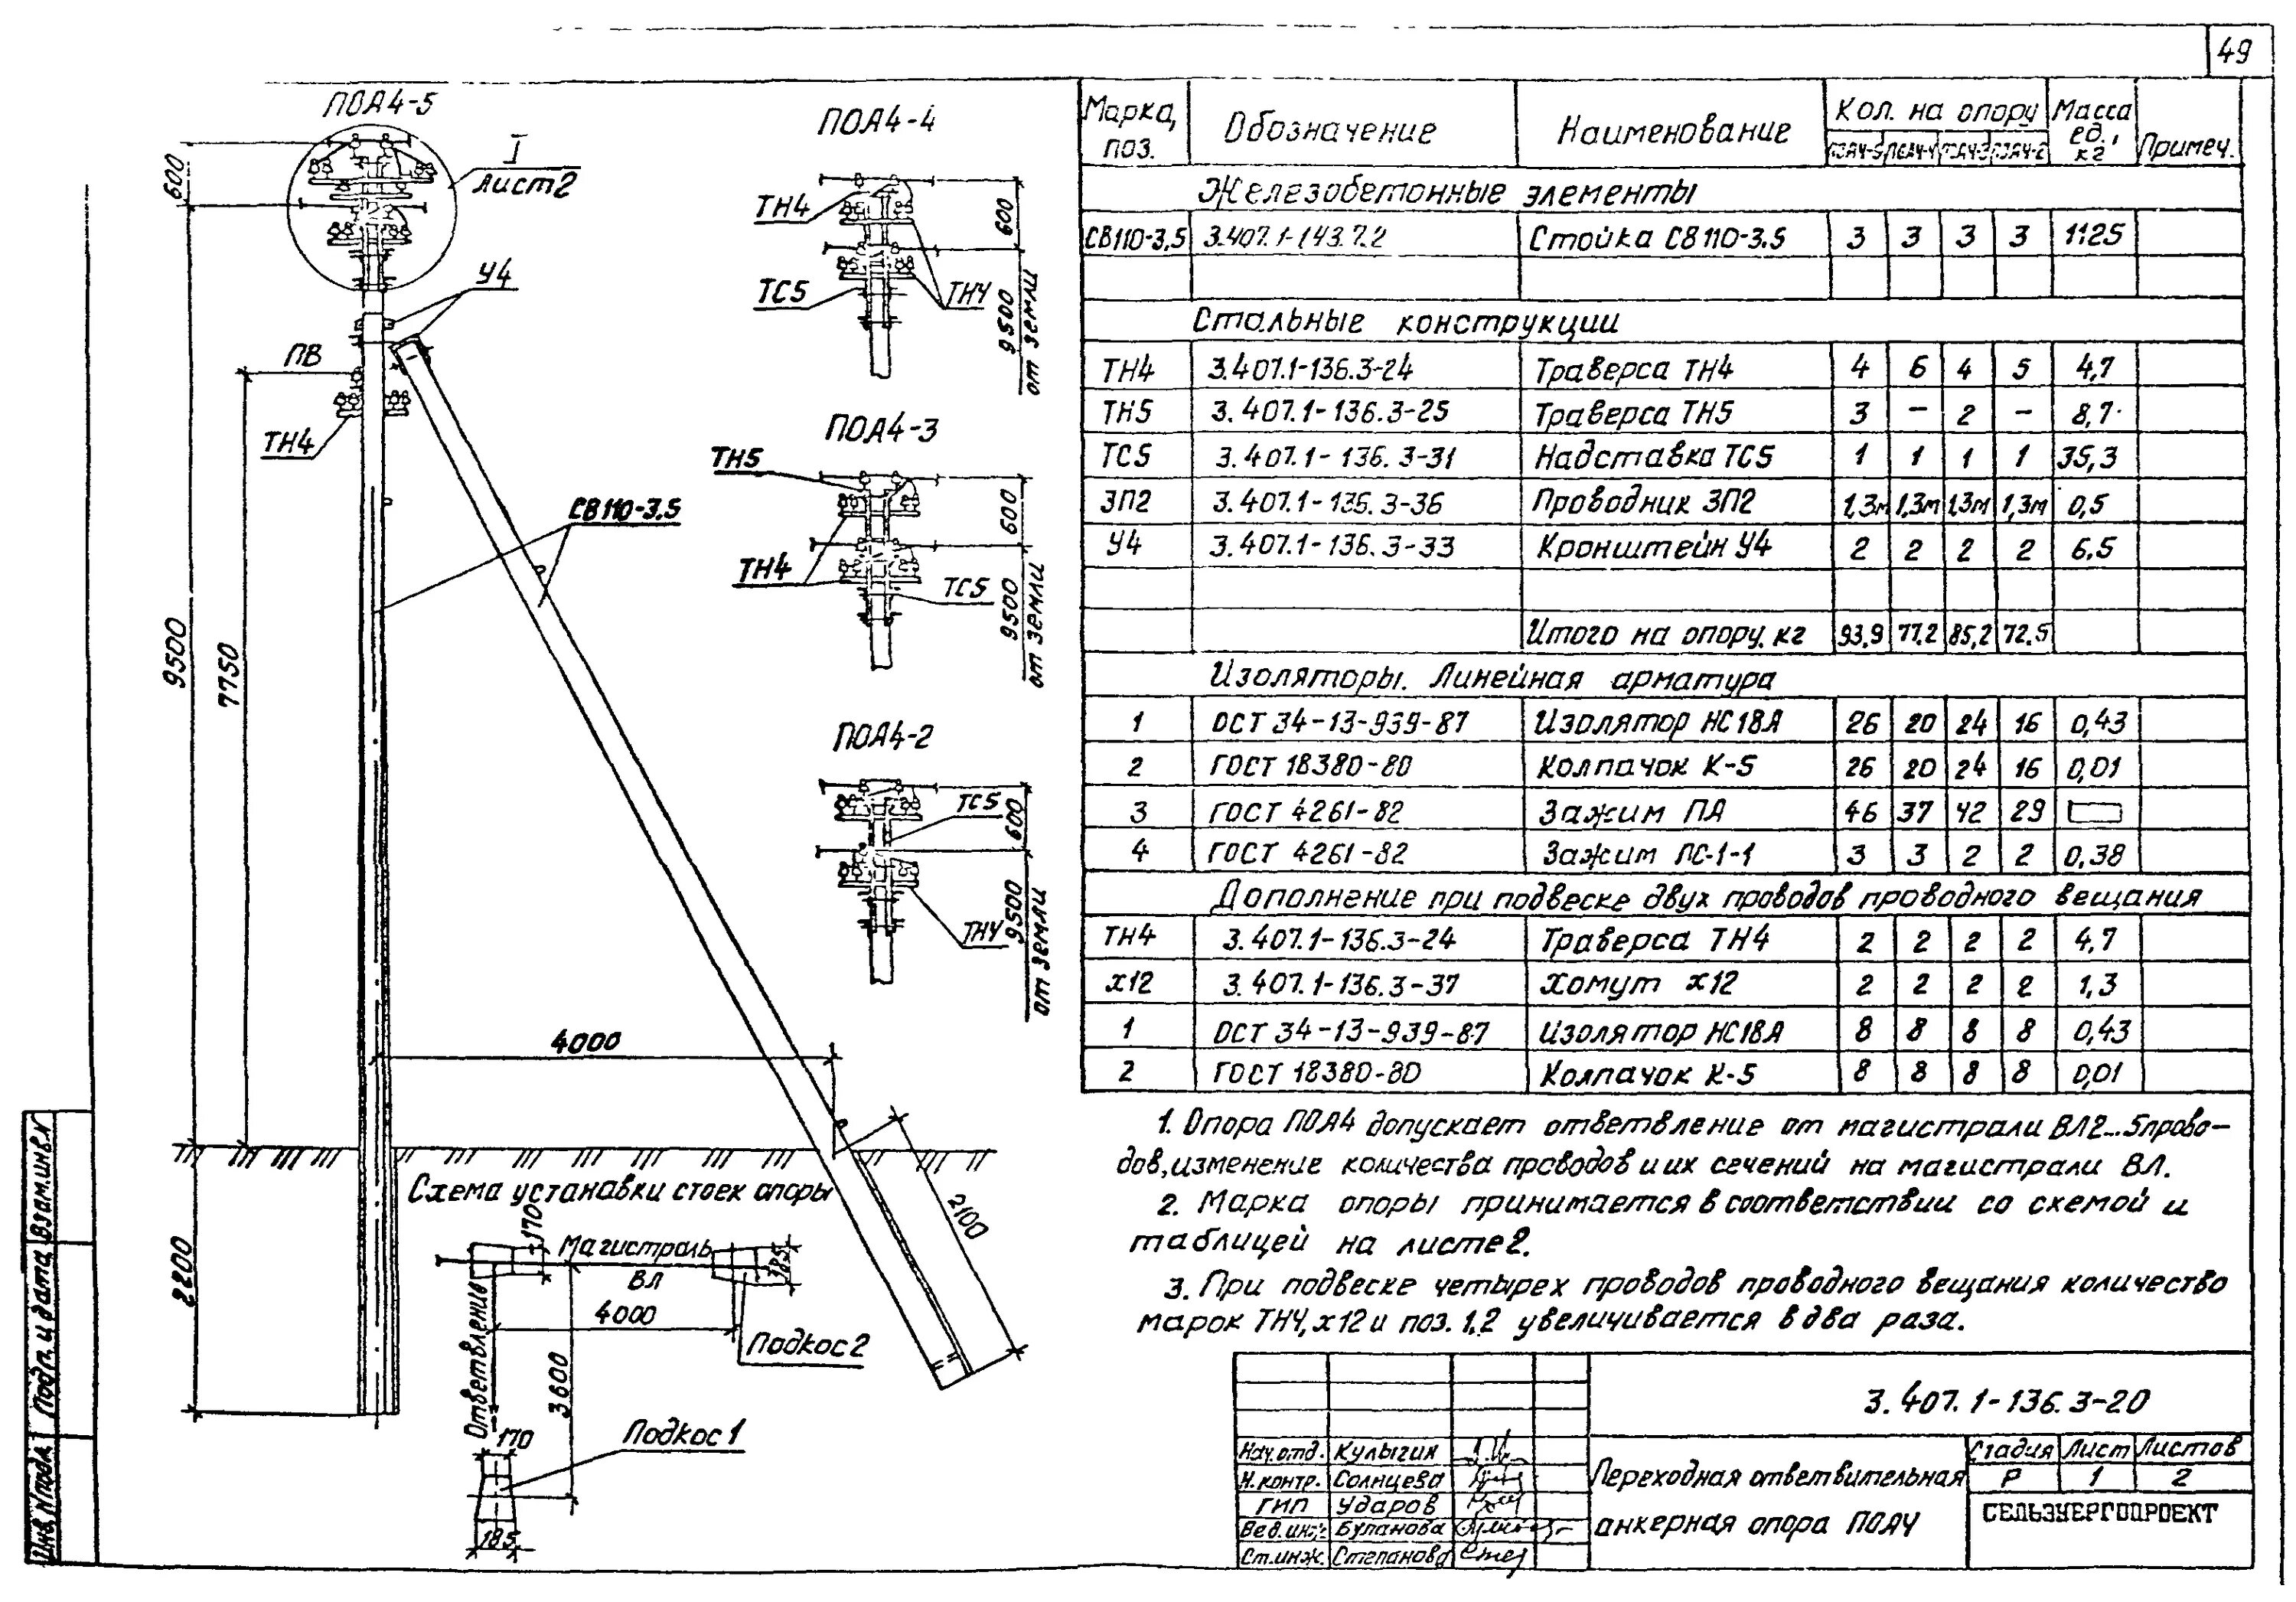 49
ПОА4-5
I
Лист 2
600
У4
ПВ
ТН4
СВ110-3.5
9500
7750
2200
4000
2100
ПОА4-4
ТН4
ТС5
ТН4
600
9500
от земли
ПОА4-3
ТН5
ТН4
ТС5
600
9500
от земли
ПОА4-2
ТС5
ТН4
600
9500
от земли
Схема установки стоек опоры
170
Магистраль
ВЛ
4000
Подкос 2
Ответвление
3600
Подкос 1
170
185
Марка, поз. Обозначение Наименование Кол. на опору Масса ед., кг Примеч.
ПОА4-5 ПОА4-4 ПОА4-3 ПОА4-2
Железобетонные элементы
СВ110-3,5 3.407.1-143.7.2 Стойка СВ110-3.5 3 3 3 3 1125
Стальные конструкции
ТН4 3.407.1-136.3-24 Траверса ТН4 4 6 4 5 4,7
ТН5 3.407.1-136.3-25 Траверса ТН5 3 – 2 – 8,7
ТС5 3.407.1-136.3-31 Надставка ТС5 1 1 1 1 35,3
ЗП2 3.407.1-136.3-36 Проводник ЗП2 1,3м 1,3м 1,3м 1,3м 0,5
У4 3.407.1-136.3-33 Кронштейн У4 2 2 2 2 6.5
Итого на опору, кг 93,9 77.2 85,2 72.5
Изоляторы. Линейная арматура
1 ОСТ 34-13-939-87 Изолятор НС18А 26 20 24 16 0,43
2 ГОСТ 18380-80 Колпачок К-5 26 20 24 16 0,01
3 ГОСТ 4261-82 Зажим ПА 46 37 42 29
4 ГОСТ 4261-82 Зажим ПС-1-1 3 3 2 2 0,38
Дополнение при подвеске двух проводов проводного вещания
ТН4 3.407.1-136.3-24 Траверса ТН4 2 2 2 2 4,7
х12 3.407.1-136.3-37 Хомут х12 2 2 2 2 1,3
1 ОСТ 34-13-939-87 Изолятор НС18А 8 8 8 8 0,43
2 ГОСТ 18380-80 Колпачок К-5 8 8 8 8 0,01
1. Опора ПОА4 допускает ответвление от магистрали ВЛ2...5 прово-
дов, изменение количества проводов и их сечений на магистрали ВЛ.
2. Марка опоры принимается в соответствии со схемой и
таблицей на листе 2.
3. При подвеске четырех проводов проводного вещания количество
марок ТН4, х12 и поз. 1,2 увеличивается в два раза.
3.407.1-136.3-20
Нач.отд. Кулыгин
Н.контр. Солнцева
ГИП Ударов
Вед.инж. Буланова
Ст.инж. Степанова
Переходная ответвительная
анкерная опора ПОА4
Стадия Лист Листов
Р 1 2
СЕЛЬЭНЕРГОПРОЕКТ
Инв. N подл. Подп. и дата Взам.инв.N